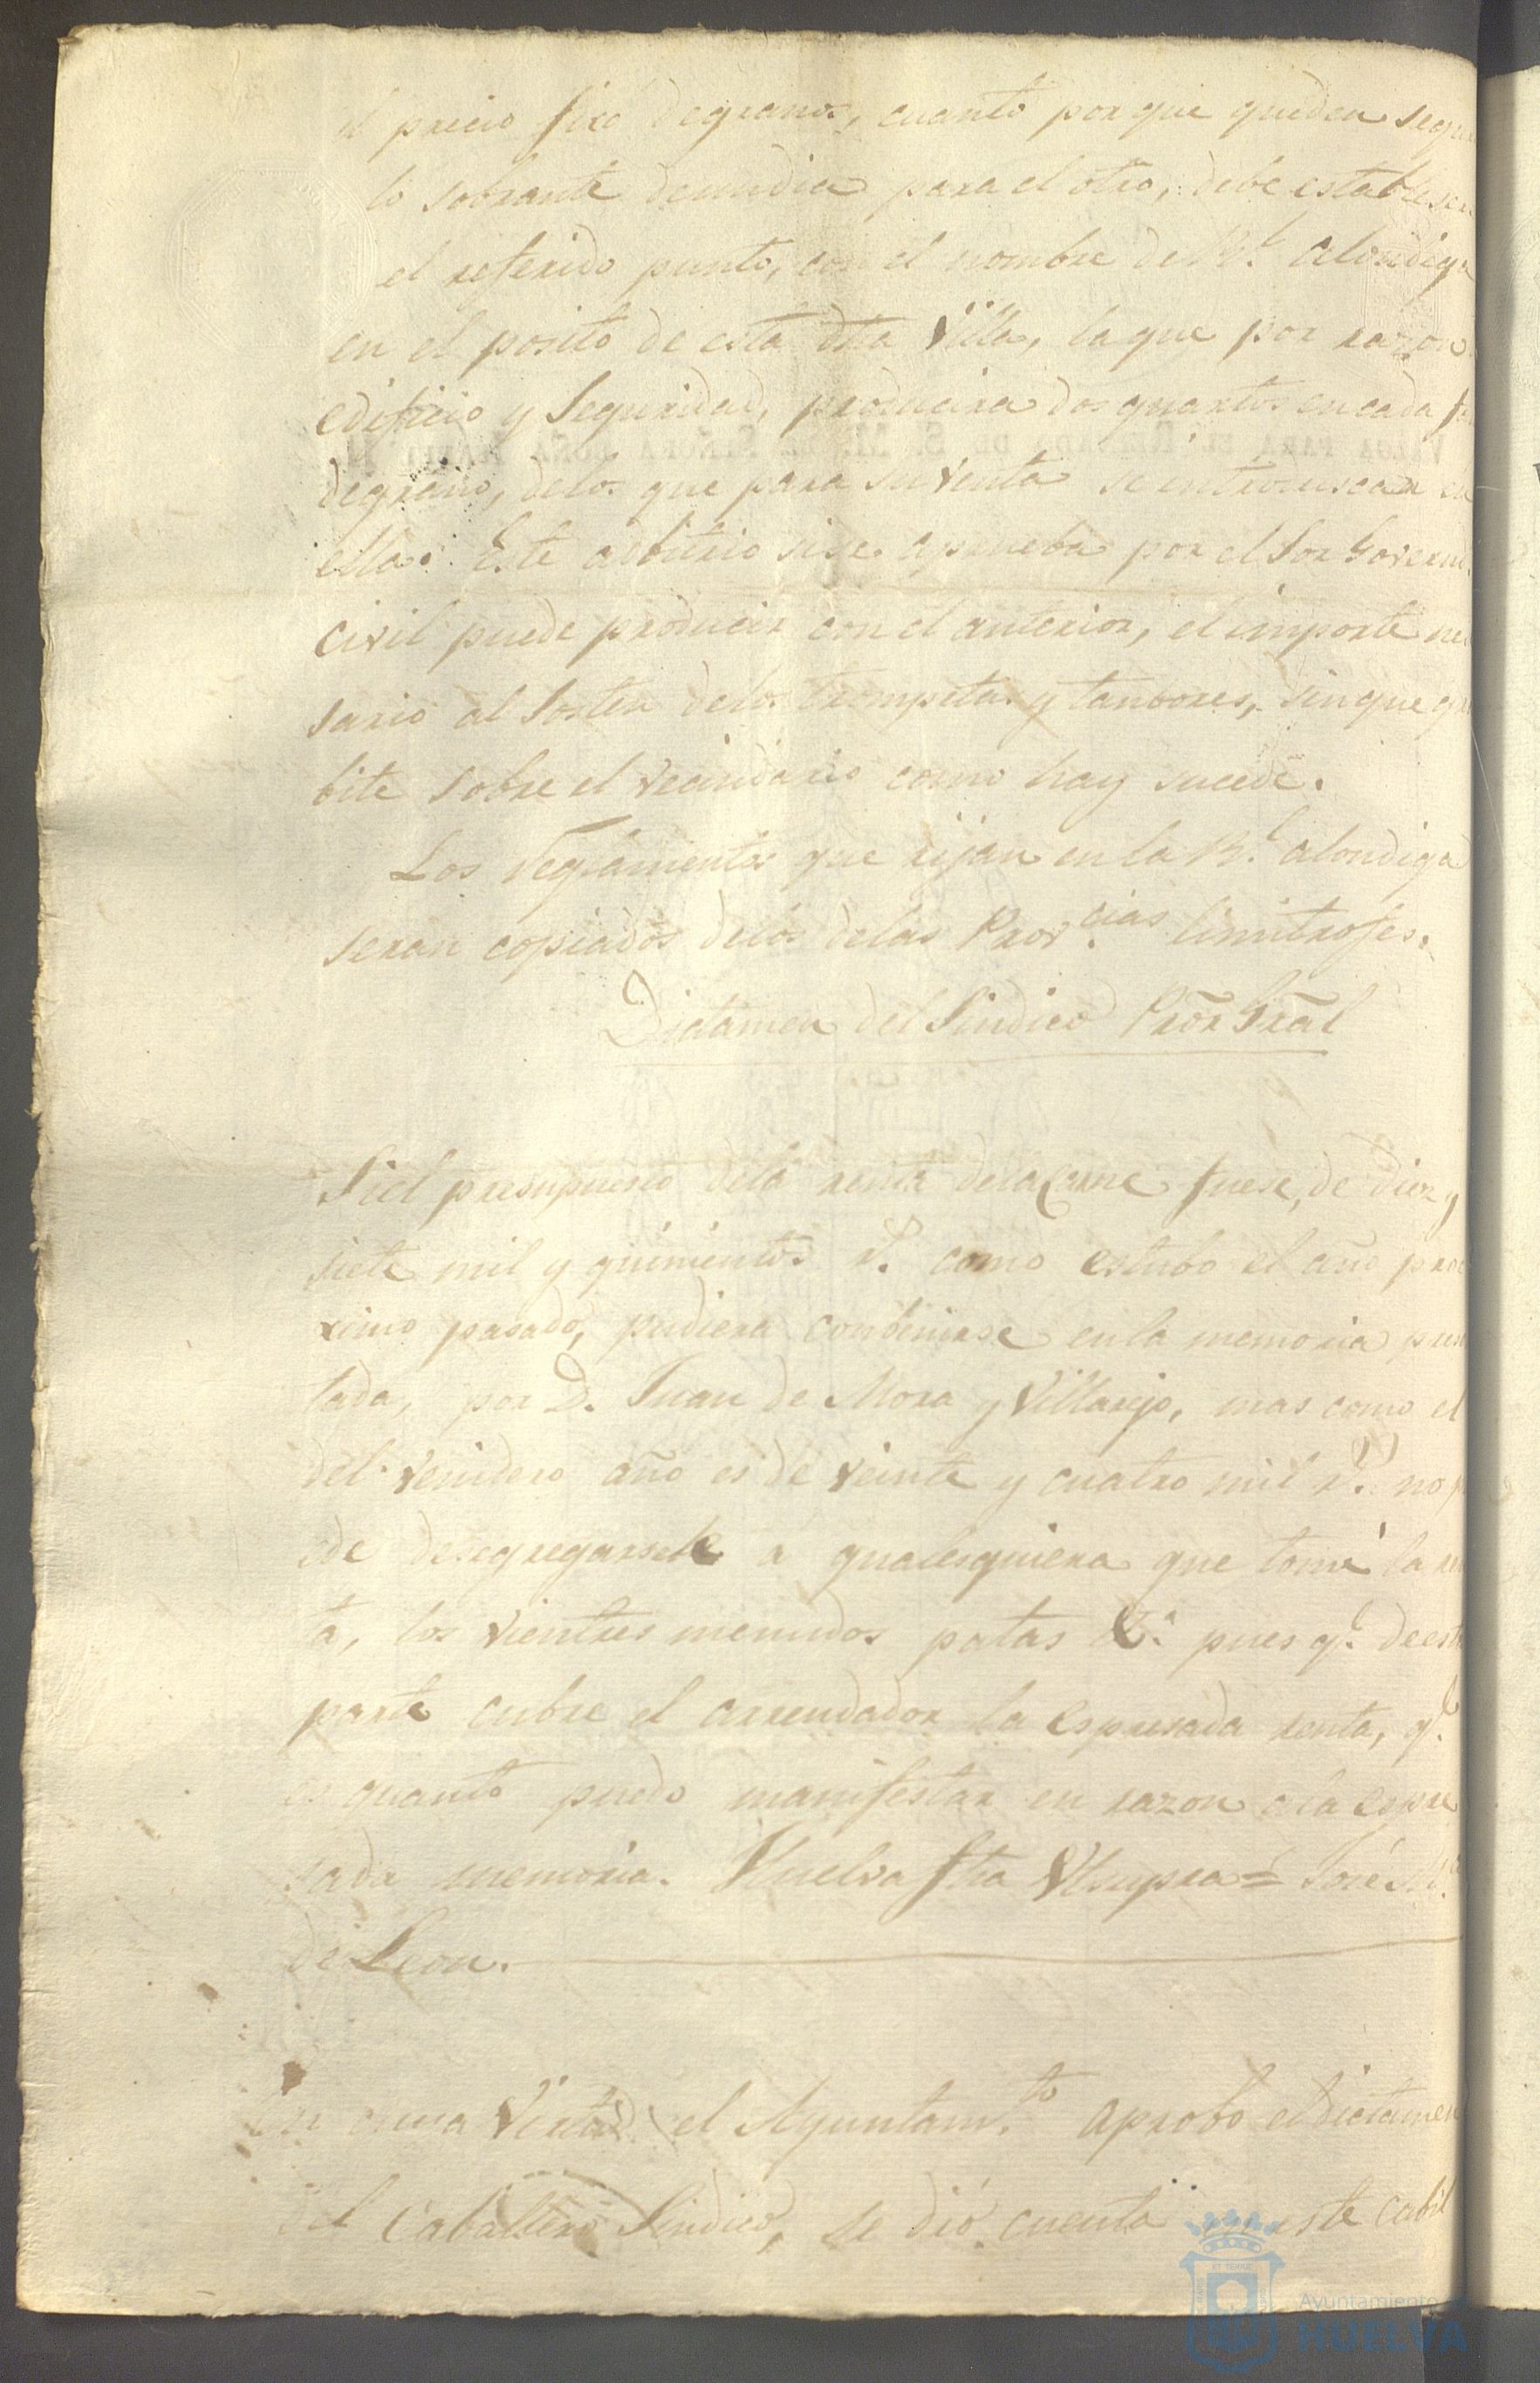 el precio fixo degranos, cuanto por que queden segu
lo sobrante deundia para el otro, debe estableser
el referido punto, con el nombre de R.l alondiga
en el posito de esta dha Villa, la que por razon
edificio y Seguridad, producira dos quartos en cada
degrano, delos que para su venta se introduscan en
ella. Este advitrio sise aprueba por el Sor Govern
Civil puede producir con el anterior, el importe nes
sario al Sosten delos trompetas y tanbores, sin que gra
bite Sobre el vecindario como hay sucede.
Los Reglamentos que rijan en la R.l alondiga
seran copiados delos delas Prov.cias limitrofes.
Dictamen del Sindico Pror Gral
Si el presupuesto dela renta dela Carne fuese, de Diez y
siete mil y quinientos r.s como estubo el año proc
ximo pasado, pudiera conbenirse en la memoria presen
tada, por D. Juan de Mora y Villarejo, mas como el
del venidero año es de veinte y cuatro mil r.s no p
ede desegregarsele a qualesquiera que tome la ren
ta, los vientres menudos patas &.a pues q.e de esta
parte cubre el arrendador la espresada renta, q.e
es quanto puedo manifestar en razon ala espre
sada memoria. Huelva fha Utsupra = José M.a
de Leon.
En cuya vista el Ayuntam.to aprobo el dictamen
del Caballero Sindico, se dió cuenta en este cabil
VALGA PARA EL REINADO DE S. M. LA SEÑORA DOÑA
Ayuntamiento
HUELVA